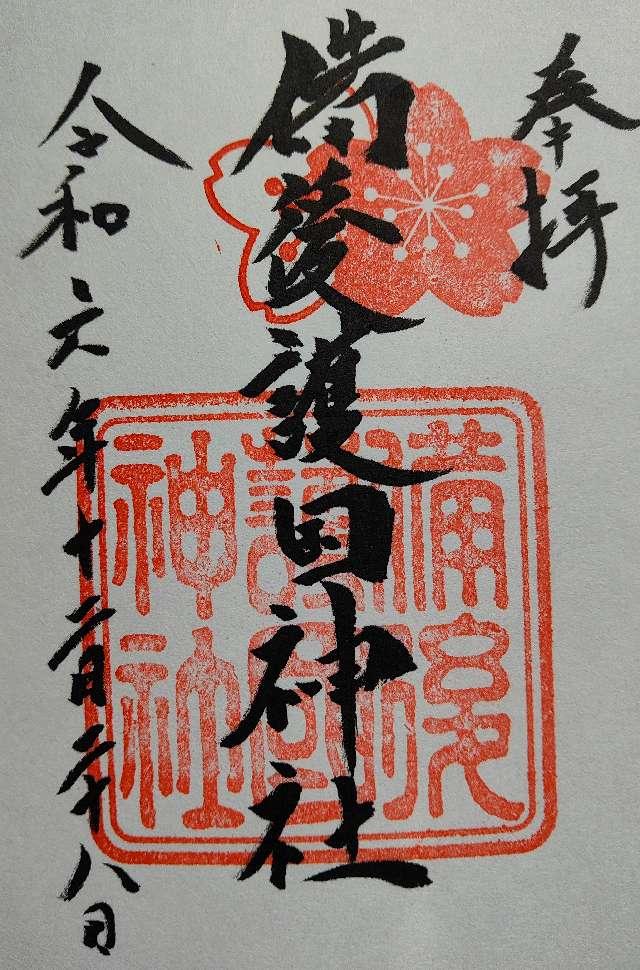 奉拝
備後護国神社
備後
護国
神社
令和六年十二月二十八日